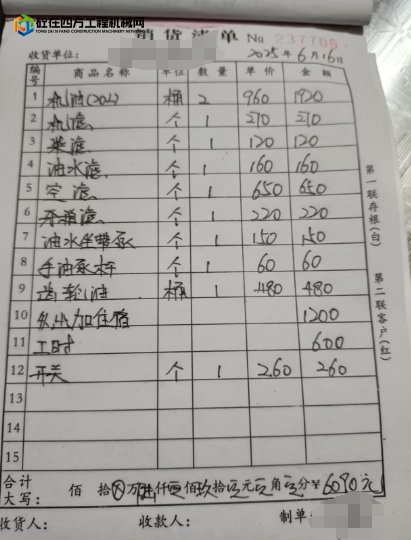 拉在四方工程机械网
销货清单 No 237705
收货单位: 2025年6月16日
编号 商品名称 单位 数量 单价 金额
1 机油(20L) 桶 2 960 1920
2 机滤 个 1 270 270
3 柴滤 个 1 120 120
4 油水滤 个 1 160 160
5 空滤 个 1 650 650
6 开箱滤 个 1 220 220
7 油水坐带泵 个 1 150 150
8 手油泵 个 1 60 60
9 齿轮油 桶 1 480 480
10 1200
11 工时 600
12 开关 个 1 260 260
13
14
15
合计大写: 佰 拾 万陆仟零佰玖拾零元零角零分¥6090元
收货人: 收款人: 制单:
第一联存根(白)
第二联客户(红)